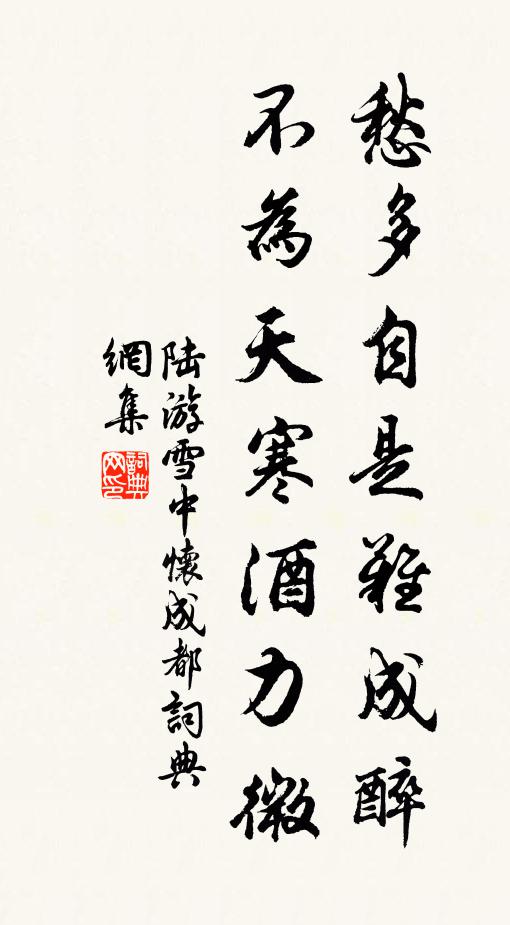 愁多自是難成醉
不為天寒酒力微
陸游雪中懷成都詞典
網集
詞典
网印